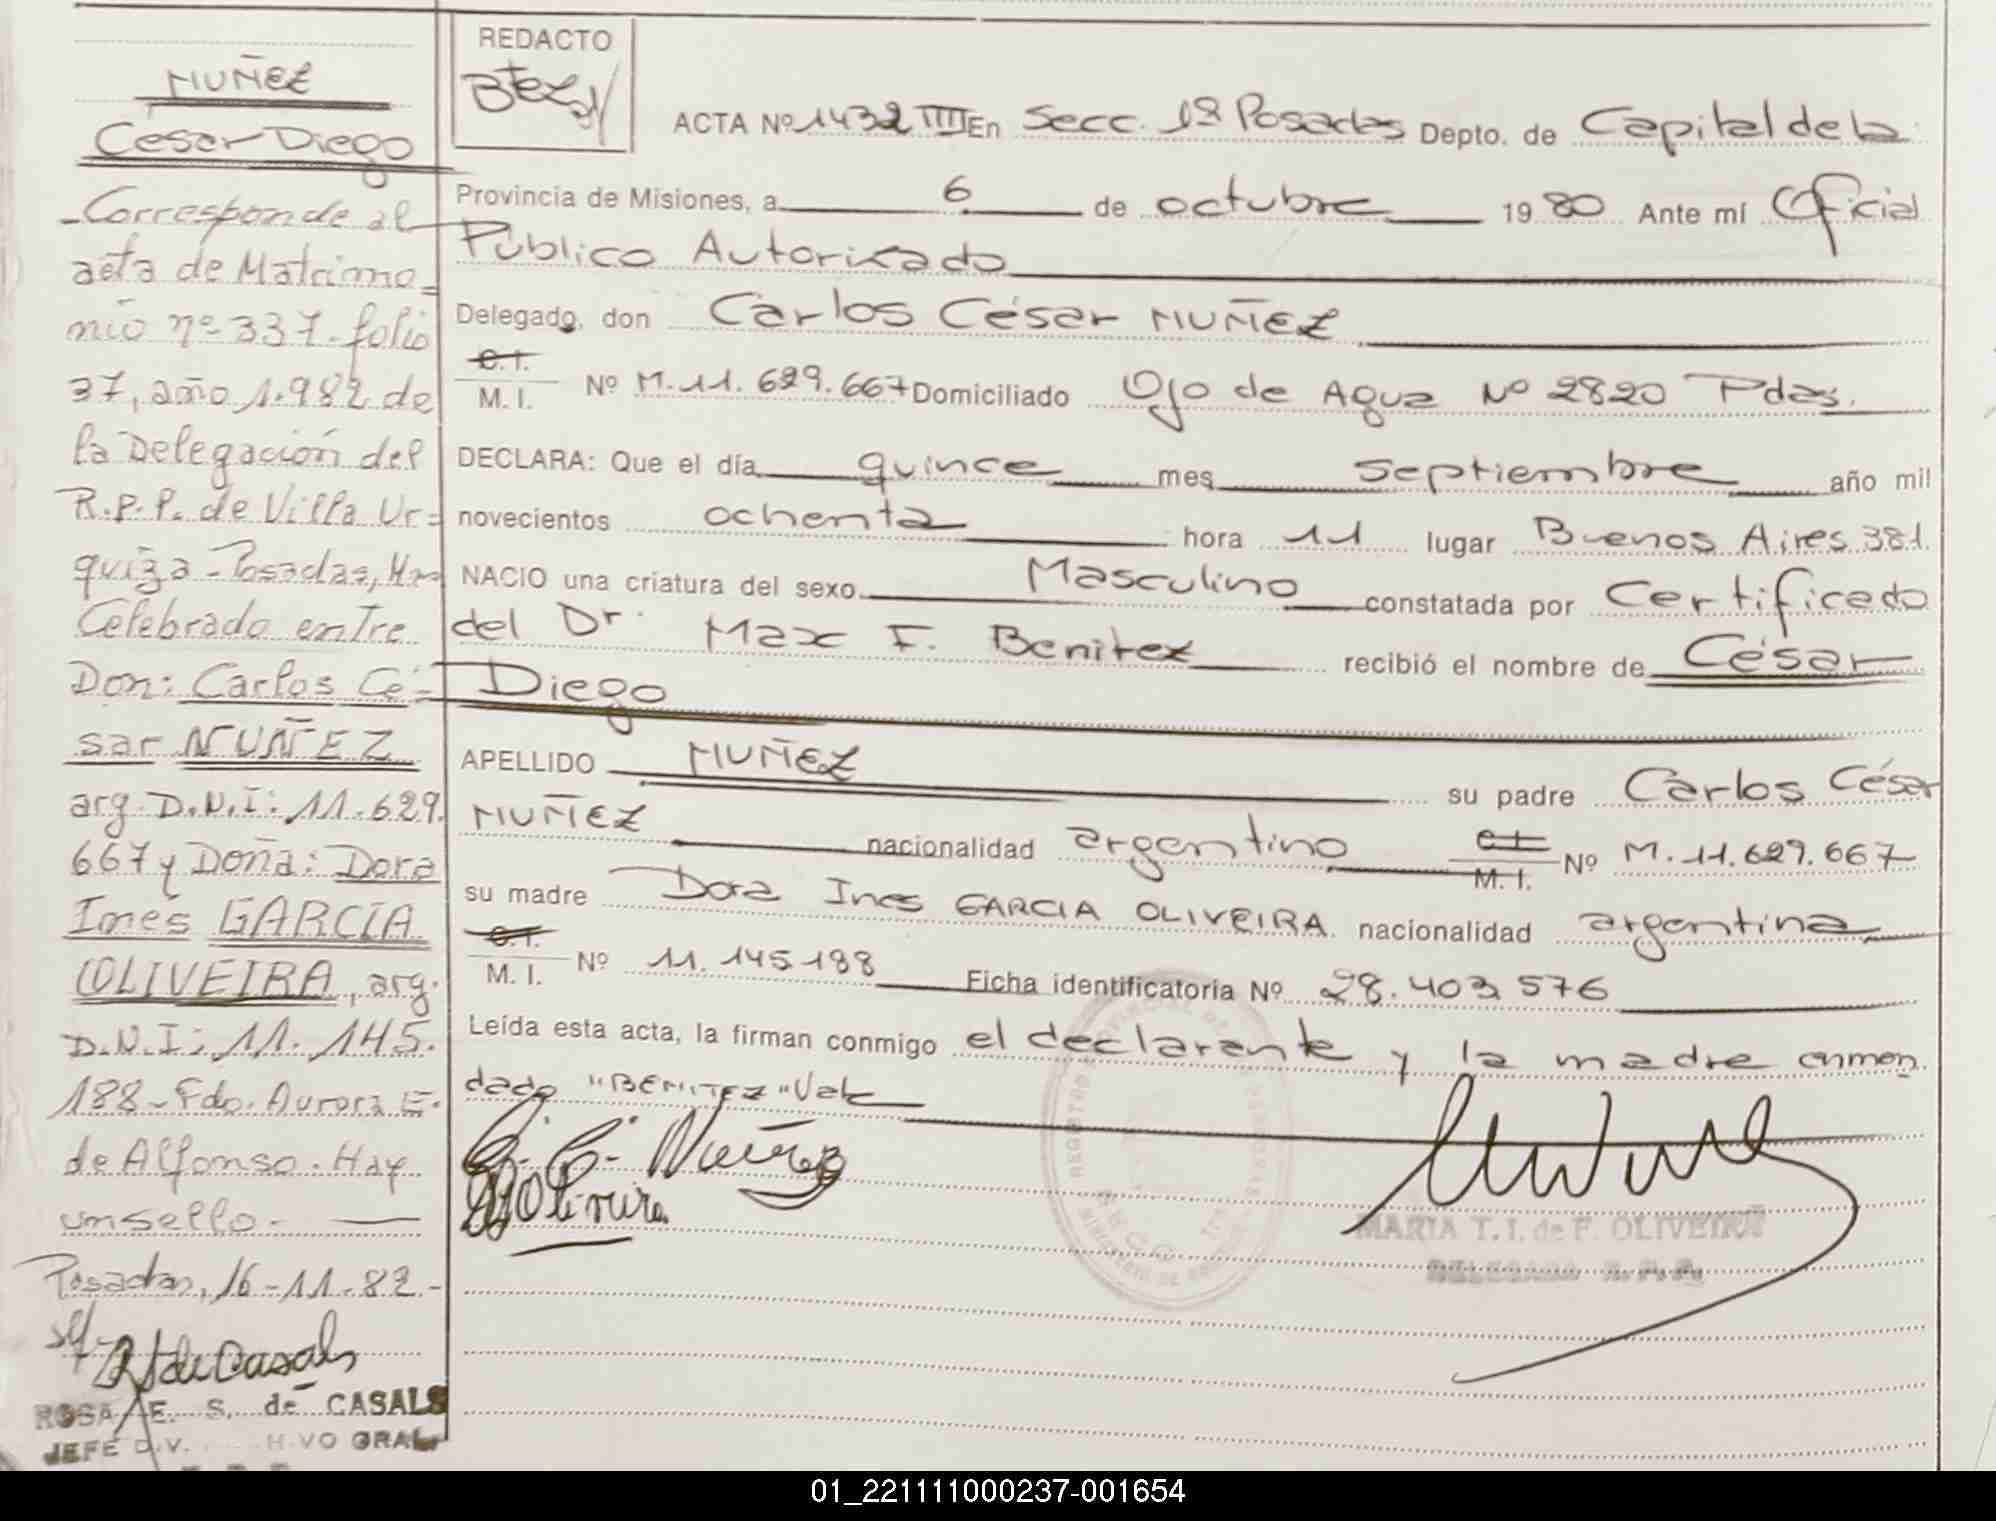 NUÑEZ
César Diego
-Corresponde al
acta de Matrimo=
nio nº 337-folio
37, año 1.982 de
la Delegación del
R.P.P. de Villa Ur=
quiza-Posadas, Mnes
Celebrado entre
Don: Carlos Cé=
sar NUÑEZ
arg. D.N.I: 11.629.
667 y Doña: Dora
Ines GARCIA
OLIVEIRA, arg.
D.N.I: 11.145.
188-Fdo. Aurora E.
de Alfonso. Hay
un sello.-
Posadas, 16-11-82.-
ROSA E. S. de CASALS
JEFE DIV. GRAL.
REDACTO
ACTA Nº 1432 IIII En Secc. 1ª Posadas Depto. de Capital de la
Provincia de Misiones, a 6 de octubre 19 80 Ante mí Oficial
Público Autorizado
Delegado, don Carlos César NUÑEZ
C.I.
M. I. Nº M.11.629.667 Domiciliado Ojo de Agua Nº 2820 Pdas.
DECLARA: Que el día quince mes septiembre año mil
novecientos ochenta hora 11 lugar Buenos Aires 381.
NACIO una criatura del sexo Masculino constatada por Certificado
del Dr. Max F. Benitez recibió el nombre de César
Diego
APELLIDO NUÑEZ su padre Carlos César
NUÑEZ nacionalidad argentino C.I. M. I. Nº M.11.629.667
su madre Dora Ines GARCIA OLIVEIRA nacionalidad argentina
C.I.
M. I. Nº 11.145.188 Ficha identificatoria Nº 28.403.576
Leída esta acta, la firman conmigo el declarante y la madre enmen
dado "BENITEZ" Vale
C. C. Nuñez
MARIA T. I. de F. OLIVEIRA
DELEGADA R. P. P.
01_221111000237-001654